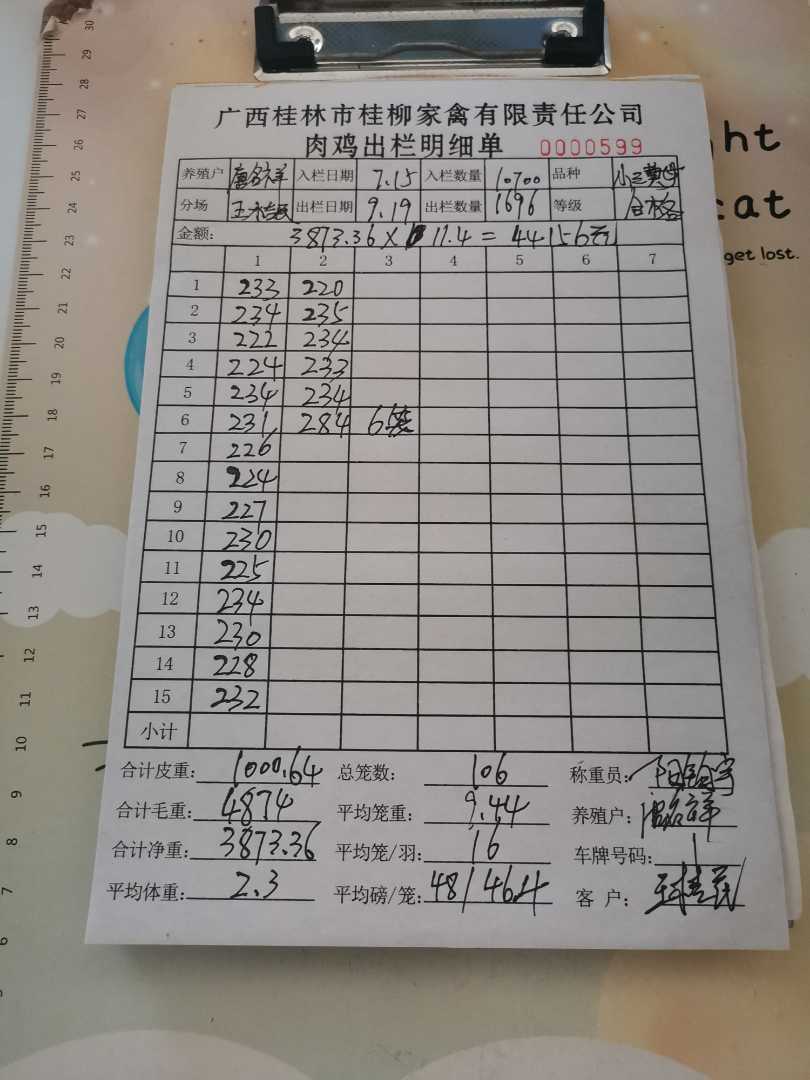 广西桂林市桂柳家禽有限责任公司
肉鸡出栏明细单 0000599
养殖户 入栏日期 7.15 入栏数量 10700 品种
分场 出栏日期 9.19 出栏数量 1696 等级 合格
金额: 3873.36 X 11.4 = 44156元
1 2 3 4 5 6 7
1 233 220
2 234 235
3 222 234
4 224 233
5 234 234
6 231 284 6装
7 226
8 224
9 227
10 230
11 225
12 234
13 230
14 228
15 232
小计
合计皮重: 1000.64 总笼数: 106 称重员:
合计毛重: 4874 平均笼重: 9.44 养殖户:
合计净重: 3873.36 平均笼/羽: 16 车牌号码:
平均体重: 2.3 平均磅/笼: 48/464 客 户:
ht
cat
get lost.
30
29
28
27
26
25
24
23
22
21
20
19
18
17
16
15
14
13
12
11
10
9
8
7
6